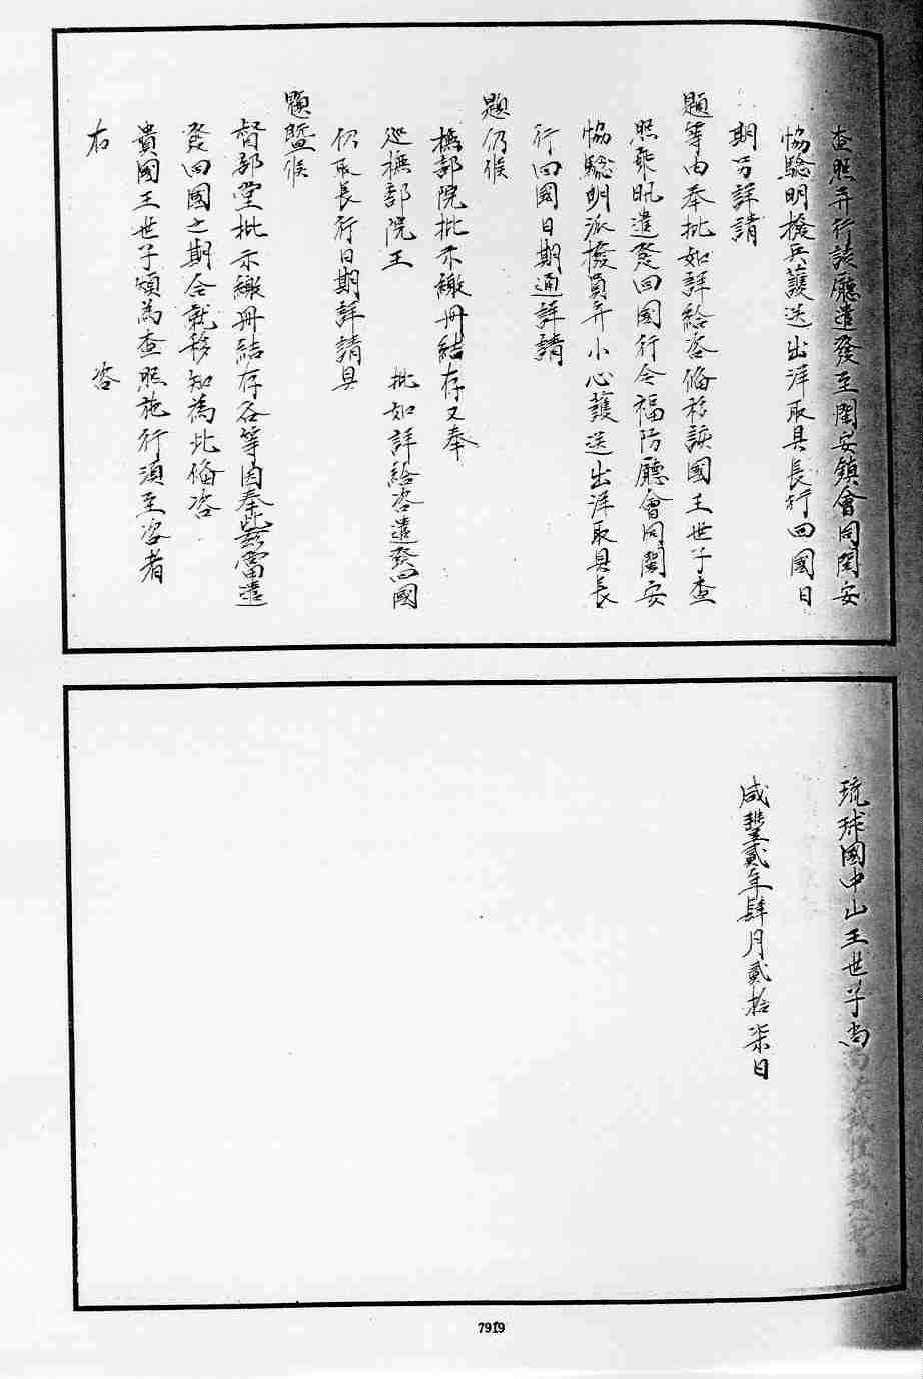 查照并行該廳遣發至閩安鎮會同閩安
恊驗明撥兵護送出洋取具長行回國日
期另詳請
題等由奉批如詳給咨俻移該國王世子查
照乘汛遣發回國行令福防廳會同閩安
恊驗明派撥員弁小心護送出洋取具長
行回國日期通詳請
題仍候
撫部院批示繳冊結存又奉
巡撫部院王 批如詳給咨遣發回國
仍取長行日期詳請具
題暨候
督部堂批示繳冊結存各等因奉此茲當遣
發回國之期合就移知為此俻咨
貴國王世子煩為查照施行須至咨者
右 咨
琉球國中山王世子尚
咸豐貳年肆月貳拾柒日
7919